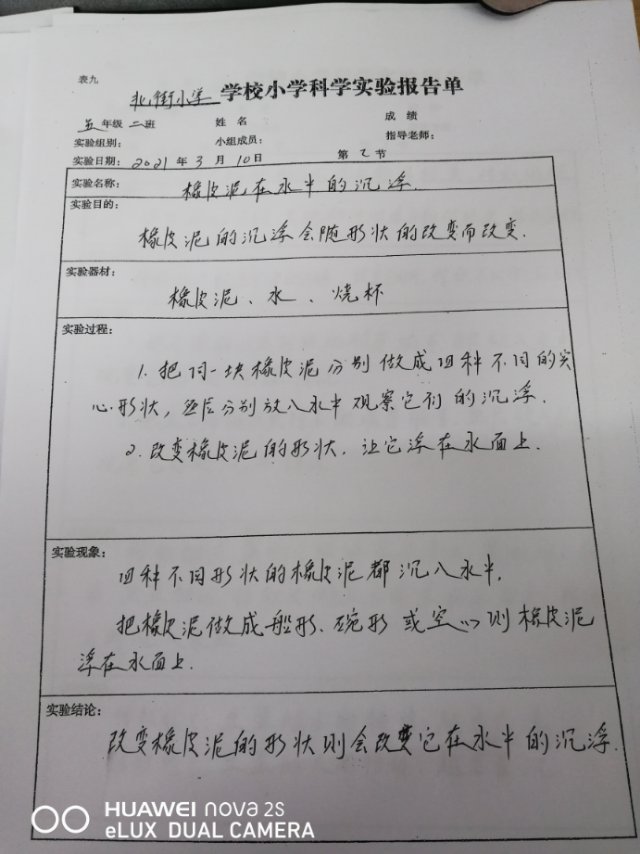 表九
北街小学 学校小学科学实验报告单
五年级二班 姓名 成绩
实验组别: 小组成员: 指导老师:
实验日期: 2021年3月10日 第乙节
实验名称: 橡皮泥在水中的沉浮.
实验目的:
橡皮泥的沉浮会随形状的改变而改变.
实验器材:
橡皮泥、水、烧杯
实验过程:
1. 把同一块橡皮泥分别做成四种不同的实
心形状, 然后分别放入水中观察它们的沉浮.
2. 改变橡皮泥的形状, 让它浮在水面上.
实验现象:
四种不同形状的橡皮泥都沉入水中,
把橡皮泥做成船形、碗形或空心则橡皮泥
浮在水面上.
实验结论:
改变橡皮泥的形状则会改变它在水中的沉浮.
HUAWEI nova 2S
eLUX DUAL CAMERA